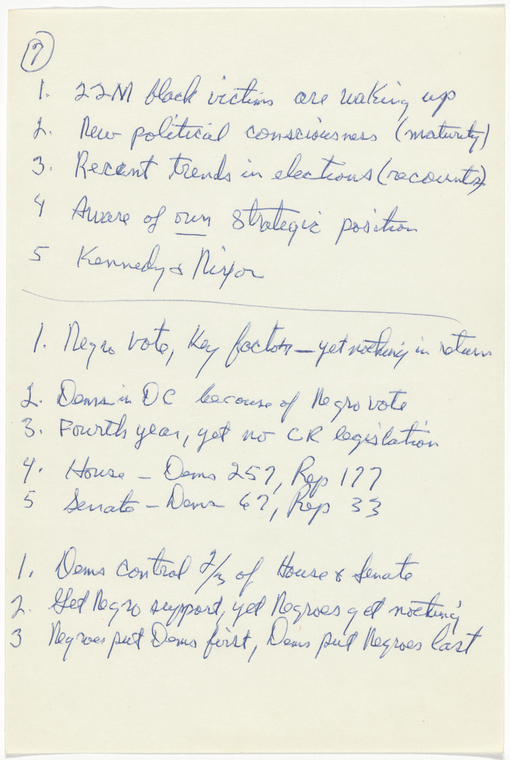 7
1. 22M black victims are waking up
2. New political consciousness (maturity)
3. Recent trends in elections (recounts)
4 Aware of our strategic position
5 Kennedy & Nixon
1. Negro vote, Key factor—yet nothing in return
2. Dems in DC because of Negro vote
3. Fourth year, yet no CR legislation
4. House – Dems 257, Rep 177
5 Senate – Dems 67, Rep 33
1. Dems control 2/3 of House & Senate
2. Get Negro support, yet Negroes get nothing
3 Negroes put Dems first, Dems put Negroes last